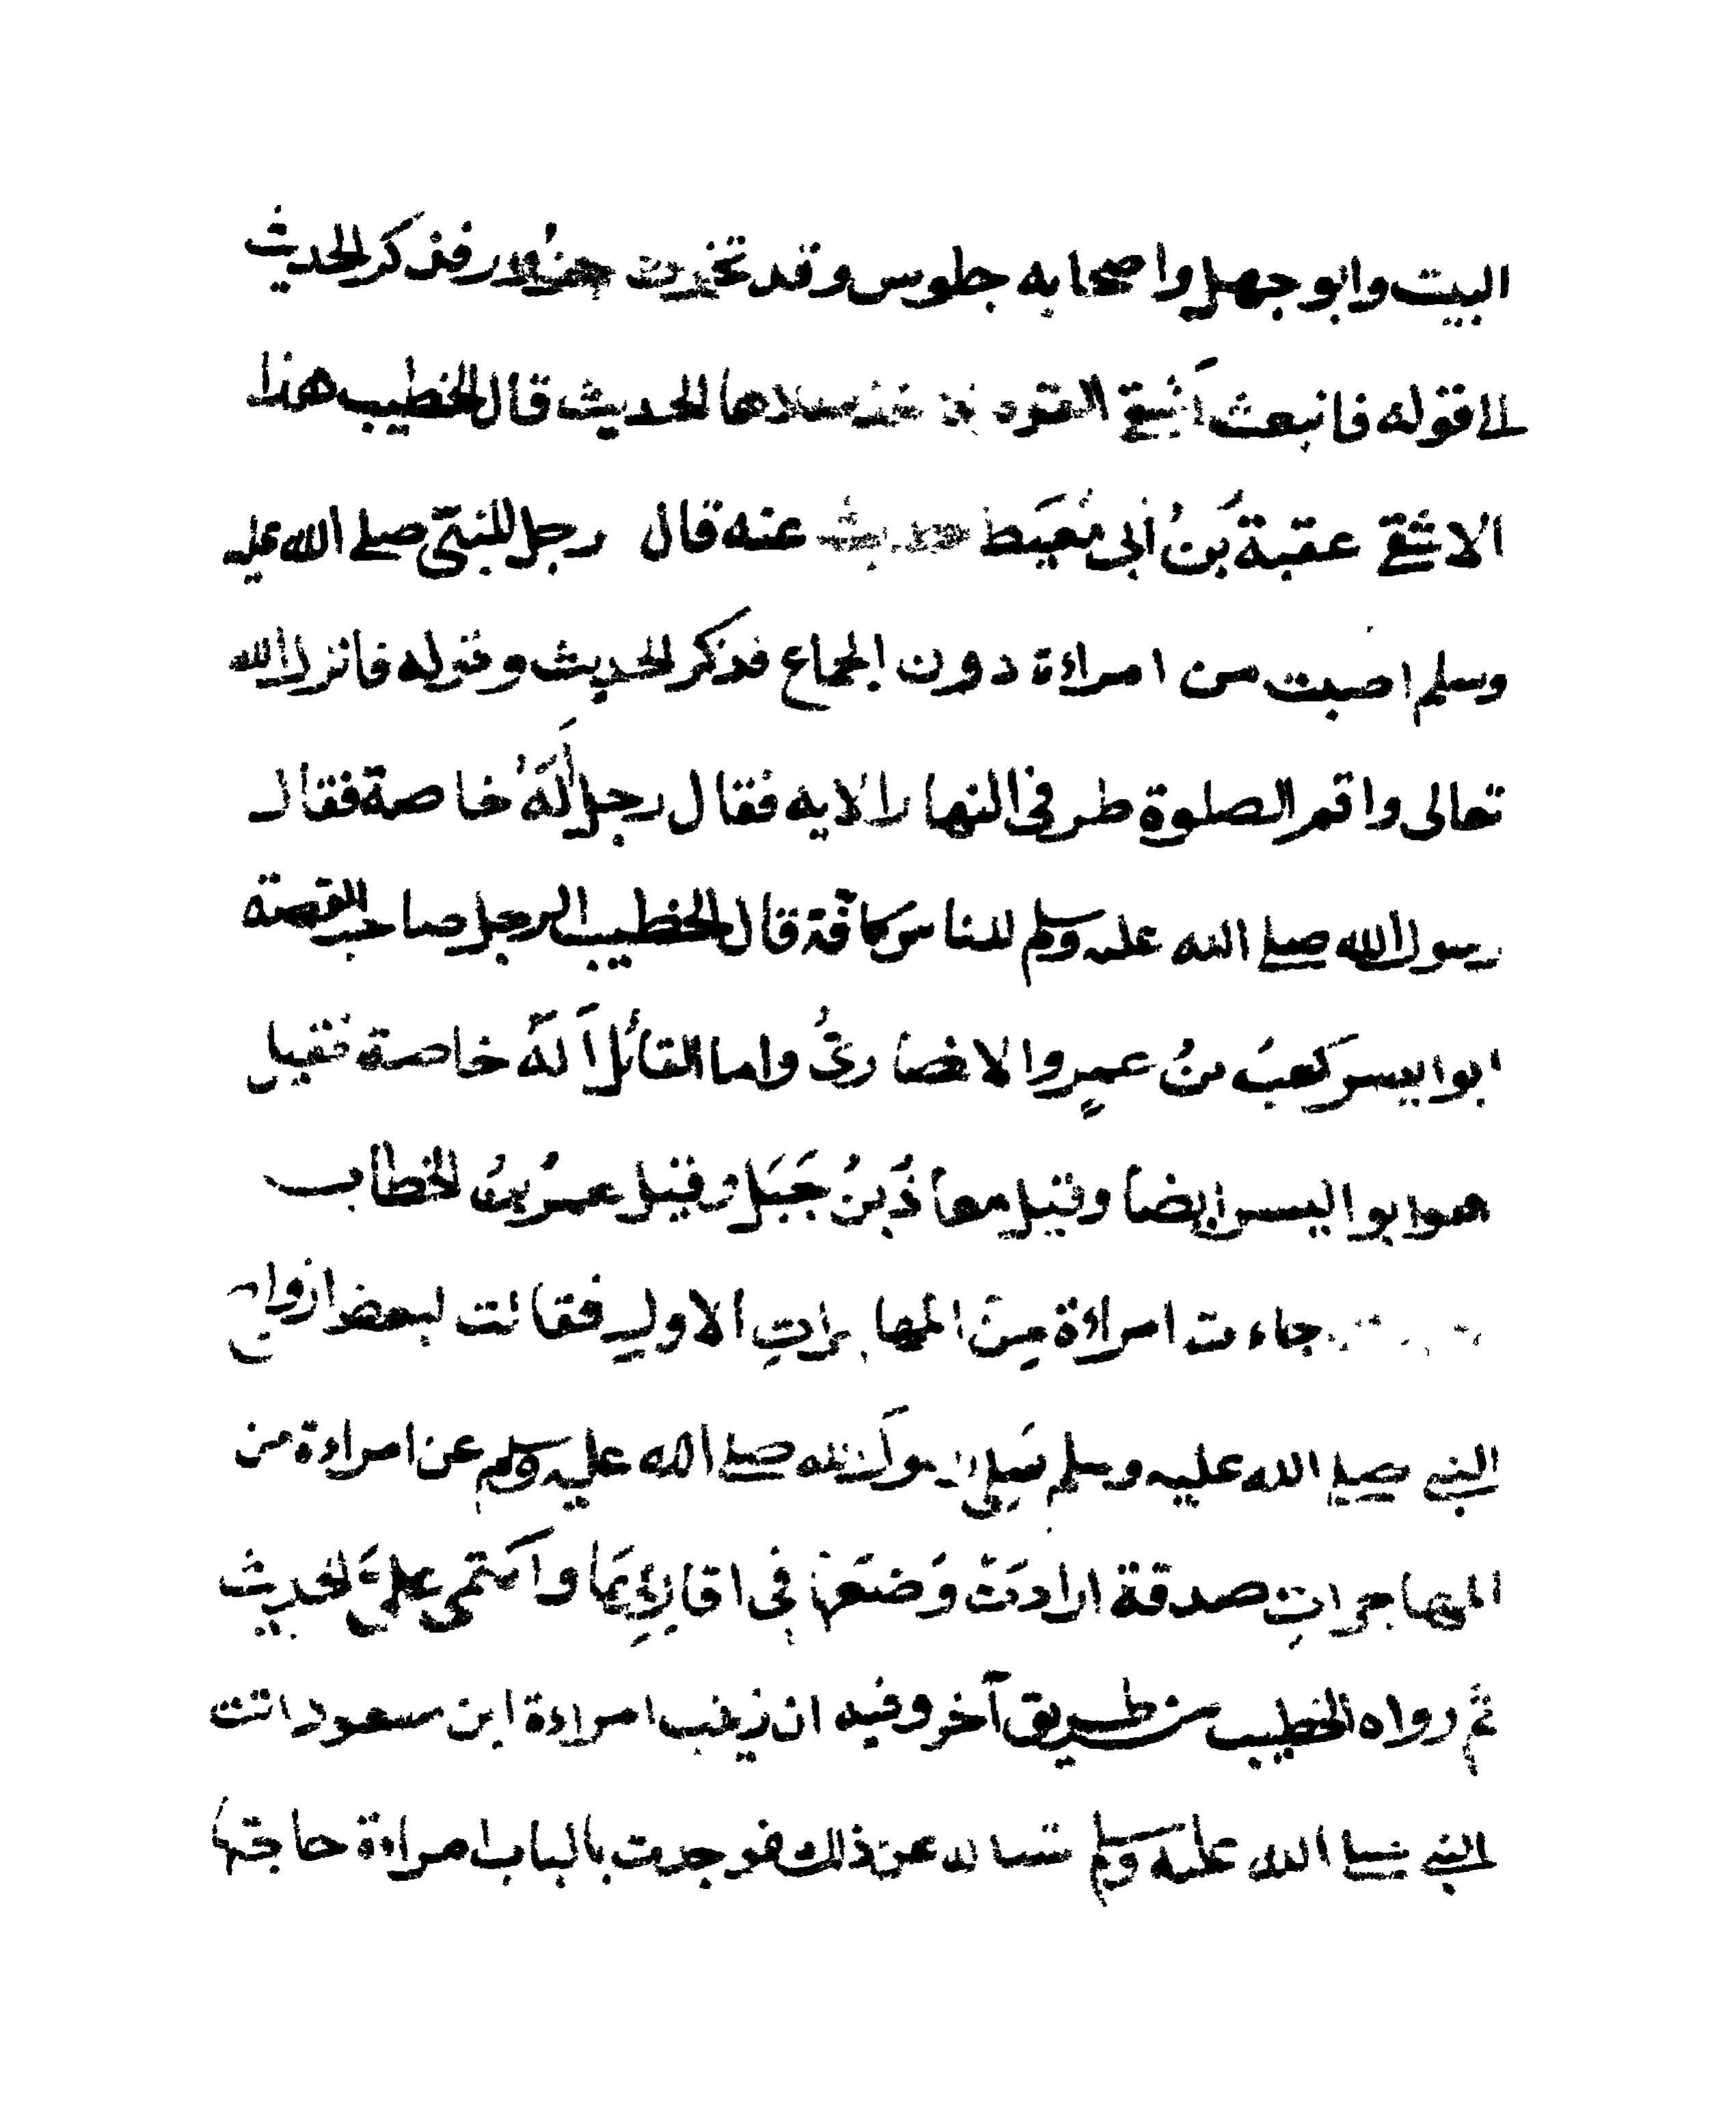 البيت وابو جهل واصحابه جلوس وقد نحرت جزور فذكر الحديث
الى قوله فانبعث أشقى القوم فاخذ سلاها الحديث قال الخطيب هذا
الاشقى عقبة بنُ أبى مُعَيط حديث عنه قال رجل للنبيّ صلى الله عليه
وسلم اصبت من امراءة دون الجماع فذكر الحديث وقوله فانزل الله
تعالى واقم الصلوة طرفى النهار الايه فقال رجل أَلَهُ خاصة فقال
رسول الله صلى الله عليه وسلم للناس كآفة قال الخطيب الرجل صاحب القصة
ابو اليسر كعبُ بنُ عمرٍو الانصاريُّ واما القائل أَلَهُ خاصة فقيل
هو ابو اليسر ايضا وقيل معاذُ بنُ جَبَل وقيل عمرُ بنُ الخطاب
جاءت امراءة مِنَ المهاجراتِ الاولِ فقالت لبعض ازواج
النبى صلى الله عليه وسلم سَلِى رسولَ الله صلى الله عليه وسلم عن امراءة من
المهاجراتِ صدقة ارادت وَضعَها فى اقارِبِها واكتمى عَلَىَّ الحديث
ثم رواه الخطيب من طريق آخر وفيه ان زينب امراءة ابن مسعود اتت
النبى صلى الله عليه وسلم تساله عن ذلك فوجدت بالباب امراءة حاجتها